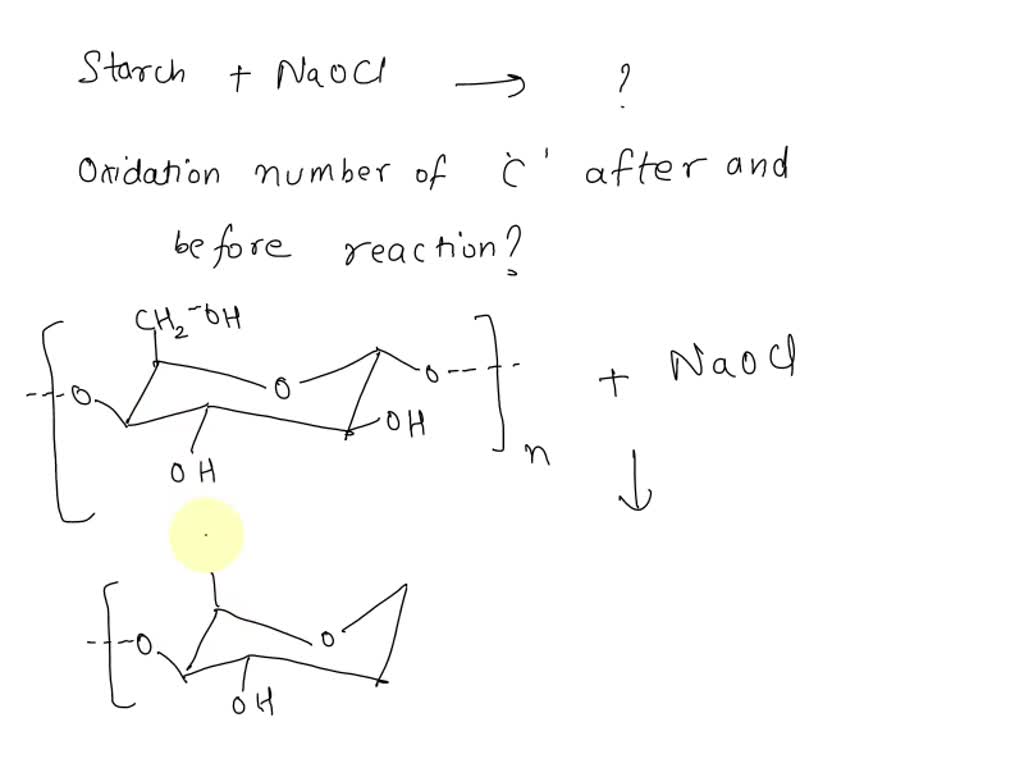 Starch + NaOCl → ?
Oxidation number of 'C' after and
before reaction?
CH2-OH
O O O + NaOCl
OH
OH n
O O
OH